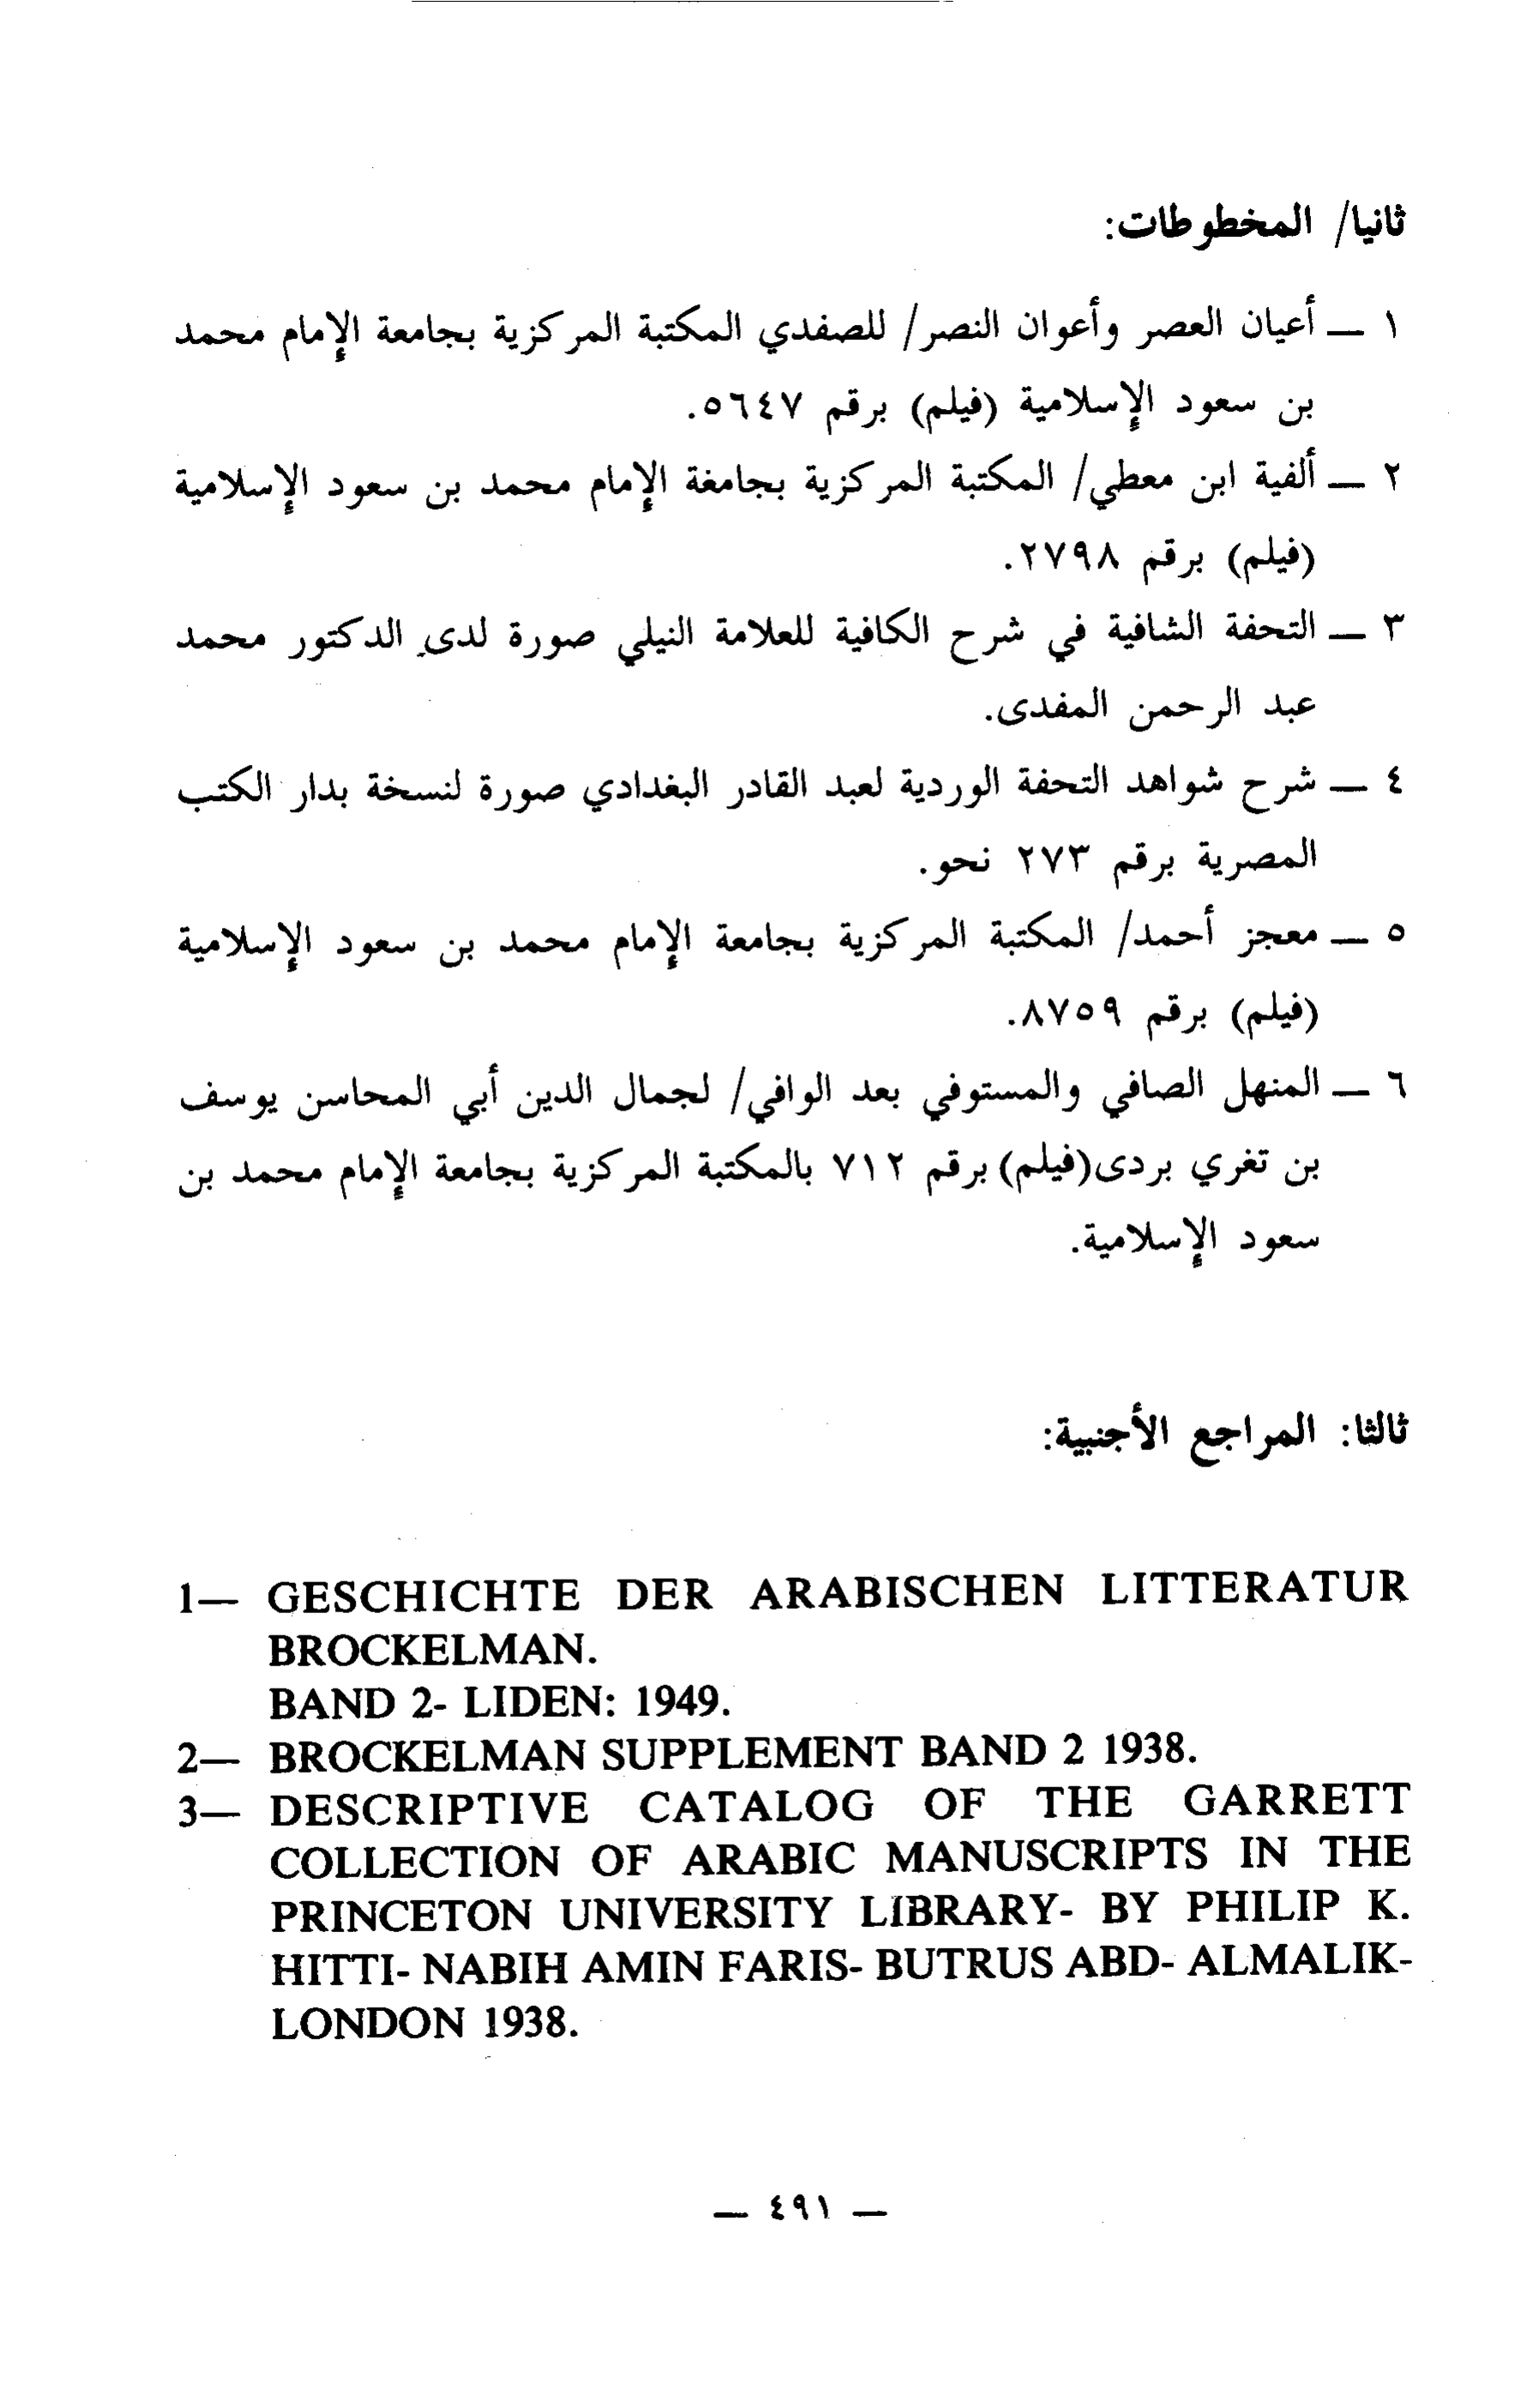 ثانيا/ المخطوطات:
١ — أعيان العصر وأعوان النصر/ للصفدي المكتبة المركزية بجامعة الإمام محمد
بن سعود الإسلامية (فيلم) برقم ٥٦٤٧.
٢ — ألفية ابن معطي/ المكتبة المركزية بجامغة الإمام محمد بن سعود الإسلامية
(فيلم) برقم ٢٧٩٨.
٣ — التحفة الشافية في شرح الكافية للعلامة النيلي صورة لدى الدكتور محمد
عبد الرحمن المفدى.
٤ — شرح شواهد التحفة الوردية لعبد القادر البغدادي صورة لنسخة بدار الكتب
المصرية برقم ٢٧٣ نحو.
٥ — معجز أحمد/ المكتبة المركزية بجامعة الإمام محمد بن سعود الإسلامية
(فيلم) برقم ٨٧٥٩.
٦ — المنهل الصافي والمستوفي بعد الوافي/ لجمال الدين أبي المحاسن يوسف
بن تغري بردى(فيلم) برقم ٧١٢ بالمكتبة المركزية بجامعة الإمام محمد بن
سعود الإسلامية.
ثالثا: المراجع الأجنبية:
1— GESCHICHTE DER ARABISCHEN LITTERATUR
BROCKELMAN.
BAND 2- LIDEN: 1949.
2— BROCKELMAN SUPPLEMENT BAND 2 1938.
3— DESCRIPTIVE CATALOG OF THE GARRETT
COLLECTION OF ARABIC MANUSCRIPTS IN THE
PRINCETON UNIVERSITY LIBRARY- BY PHILIP K.
HITTI- NABIH AMIN FARIS- BUTRUS ABD- ALMALIK-
LONDON 1938.
— ٤٩١ —